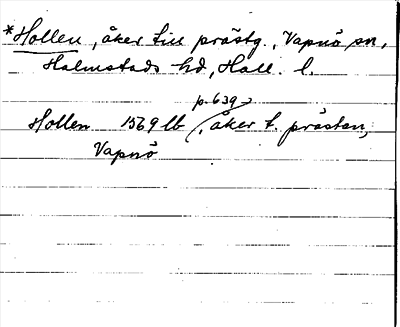 *Hollen, åker till prästg., Vapnö sn,
Halmstads hd, Hall. l.
p. 639
Hollen 1569 lb, åker t. prästen,
Vapnö